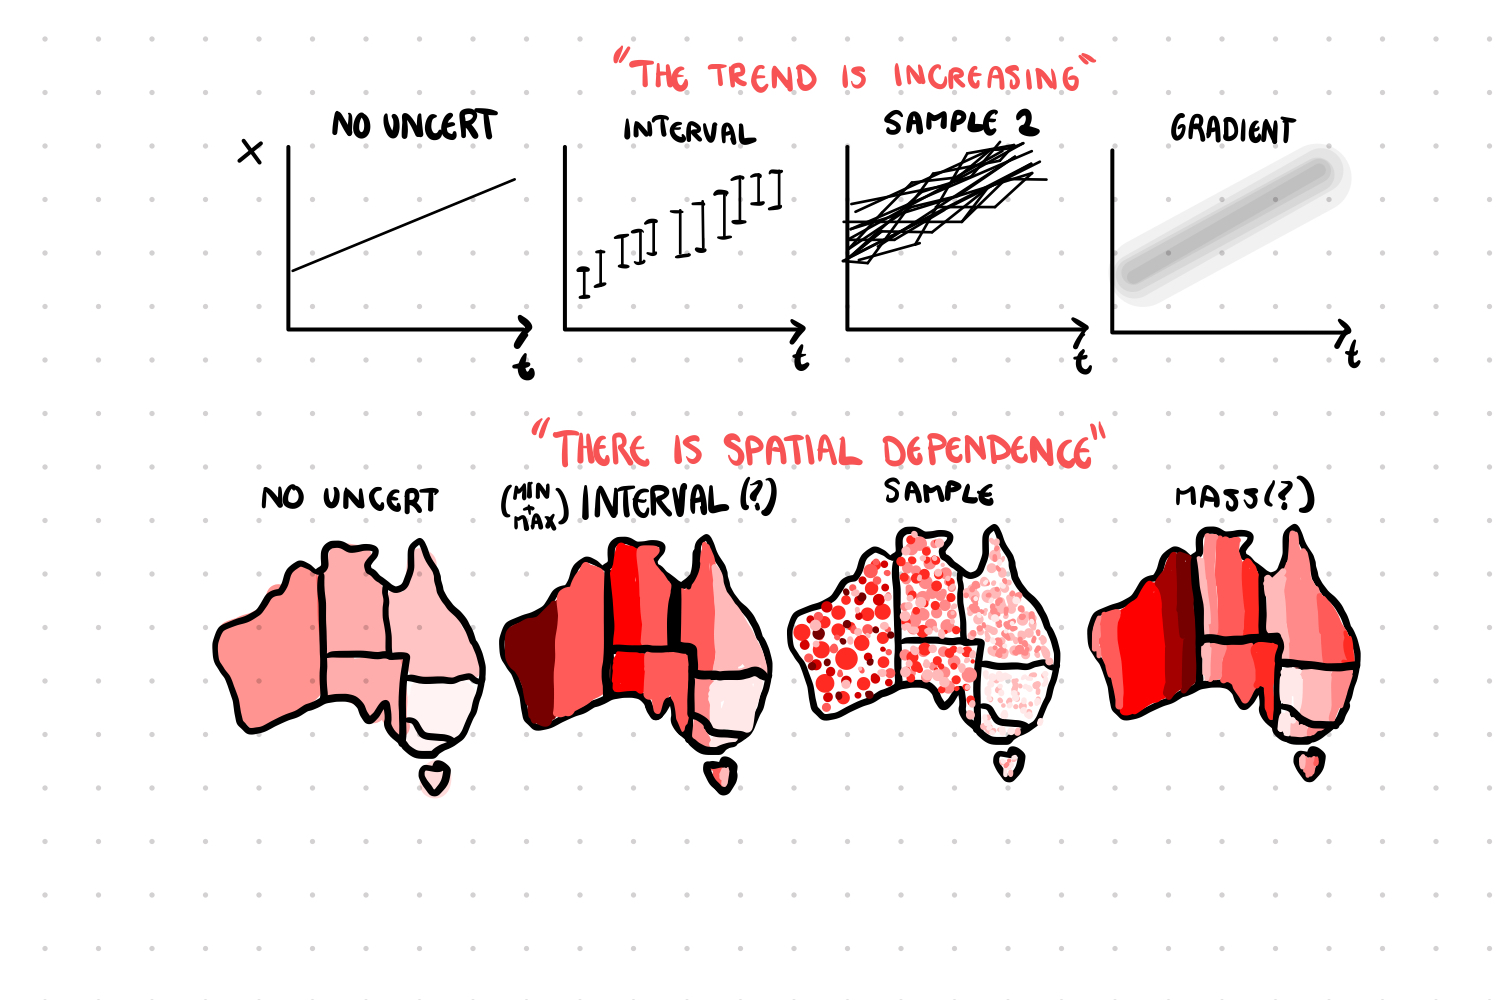 "THE TREND IS INCREASING"
NO UNCERT
INTERVAL
SAMPLE 2
GRADIENT
X
t
t
t
t
"THERE IS SPATIAL DEPENDENCE"
NO UNCERT
(MIN + MAX) INTERVAL (?)
SAMPLE
MASS(?)